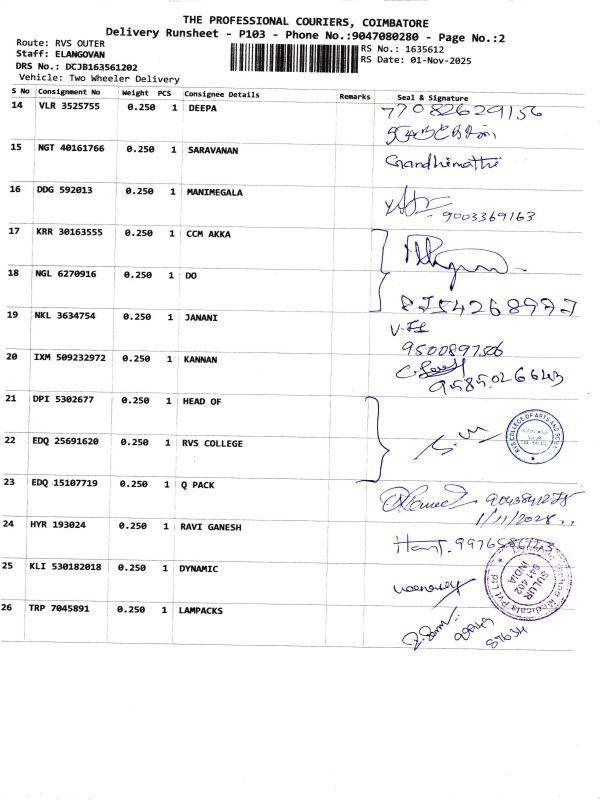 THE PROFESSIONAL COURIERS, COIMBATORE
Delivery Runsheet - P103 - Phone No.:9047080280 - Page No.:2
Route: RVS OUTER
Staff: ELANGOVAN
DRS No.: DCJB163561202
Vehicle: Two Wheeler Delivery
RS No.: 1635612
RS Date: 01-Nov-2025
S No Consignment No Weight PCS Consignee Details Remarks Seal & Signature
14 VLR 3525755 0.250 1 DEEPA
15 NGT 40161766 0.250 1 SARAVANAN Gandhimathi
16 DDG 592013 0.250 1 MANIMEGALA 9003369163
17 KRR 30163555 0.250 1 CCM AKKA
18 NGL 6270916 0.250 1 DO
19 NKL 3634754 0.250 1 JANANI
20 IXM 509232972 0.250 1 KANNAN
9585026643
21 DPI 5302677 0.250 1 HEAD OF
22 EDQ 25691620 0.250 1 RVS COLLEGE
RVS COLLEGE OF ARTS AND
23 EDQ 15107719 0.250 1 Q PACK
24 HYR 193024 0.250 1 RAVI GANESH
25 KLI 530182018 0.250 1 DYNAMIC
SULUR
641 402
INDIA
26 TRP 7045891 0.250 1 LAMPACKS